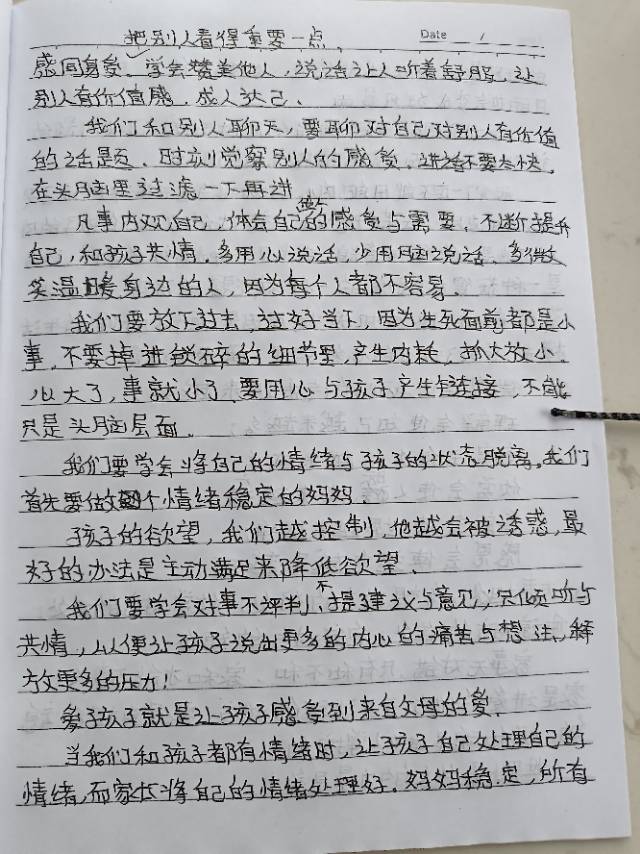 把别人看得重要一点,
Date /
感同身受、学会赞美他人,说话让人听着舒服,让
别人有价值感、成人达己、
我们和别人聊天,要聊对自己对别人有价值
的话题、时刻觉察别人的感受,讲话不要太快,
在头脑里过滤一下再讲
凡事内观自己,体会自己的感受与需要,不断提升
自己,和孩子共情,多用心说话,少用脑说话,多微
笑温暖身边的人,因为每个人都不容易、
我们要放下过去,过好当下,因为生死面前都是小
事,不要掉进锁碎的细节里,产生内耗,抓大放小,
心大了,事就小了,要用心与孩子产生连接,不能
只是头脑层面、
我们要学会将自己的情绪与孩子的状态脱离,我们
首先要做个情绪稳定的妈妈、
孩子的欲望,我们越控制,他越会被诱惑,最
好的办法是主动满足来降低欲望、
我们要学会对事不评判,不提建议与意见,只倾听与
共情,以便让孩子说出更多的内心的痛苦与想法,释
放更多的压力!
爱孩子就是让孩子感受到来自父母的爱、
当我们和孩子都有情绪时,让孩子自己处理自己的
情绪,而家长将自己的情绪处理好,妈妈稳定,所有